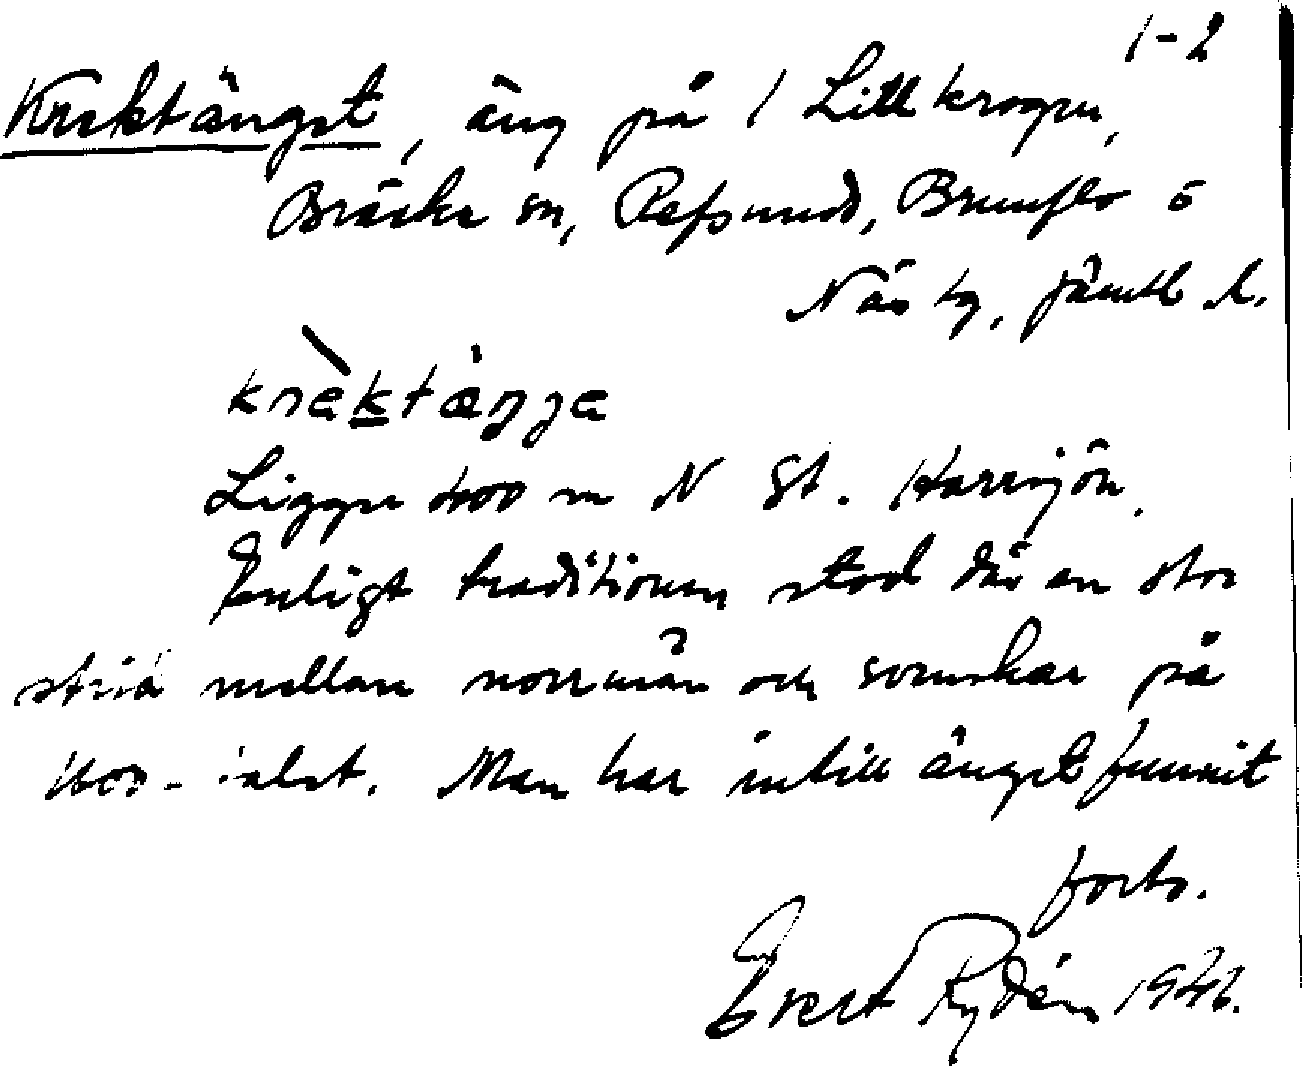 1-2
Krektänget, äng på 1 Lillkrogen,
Bräcke sn, Refsund, Brunflo o
Näs tg, Jämtl l.
Ligger 400 m N St. Harrsjön.
Enligt traditionen stod där en stor
strid mellan norrmän och svenskar på
1600-talet. Man har intill änget funnit
forts.
Evert Rydén 1946.